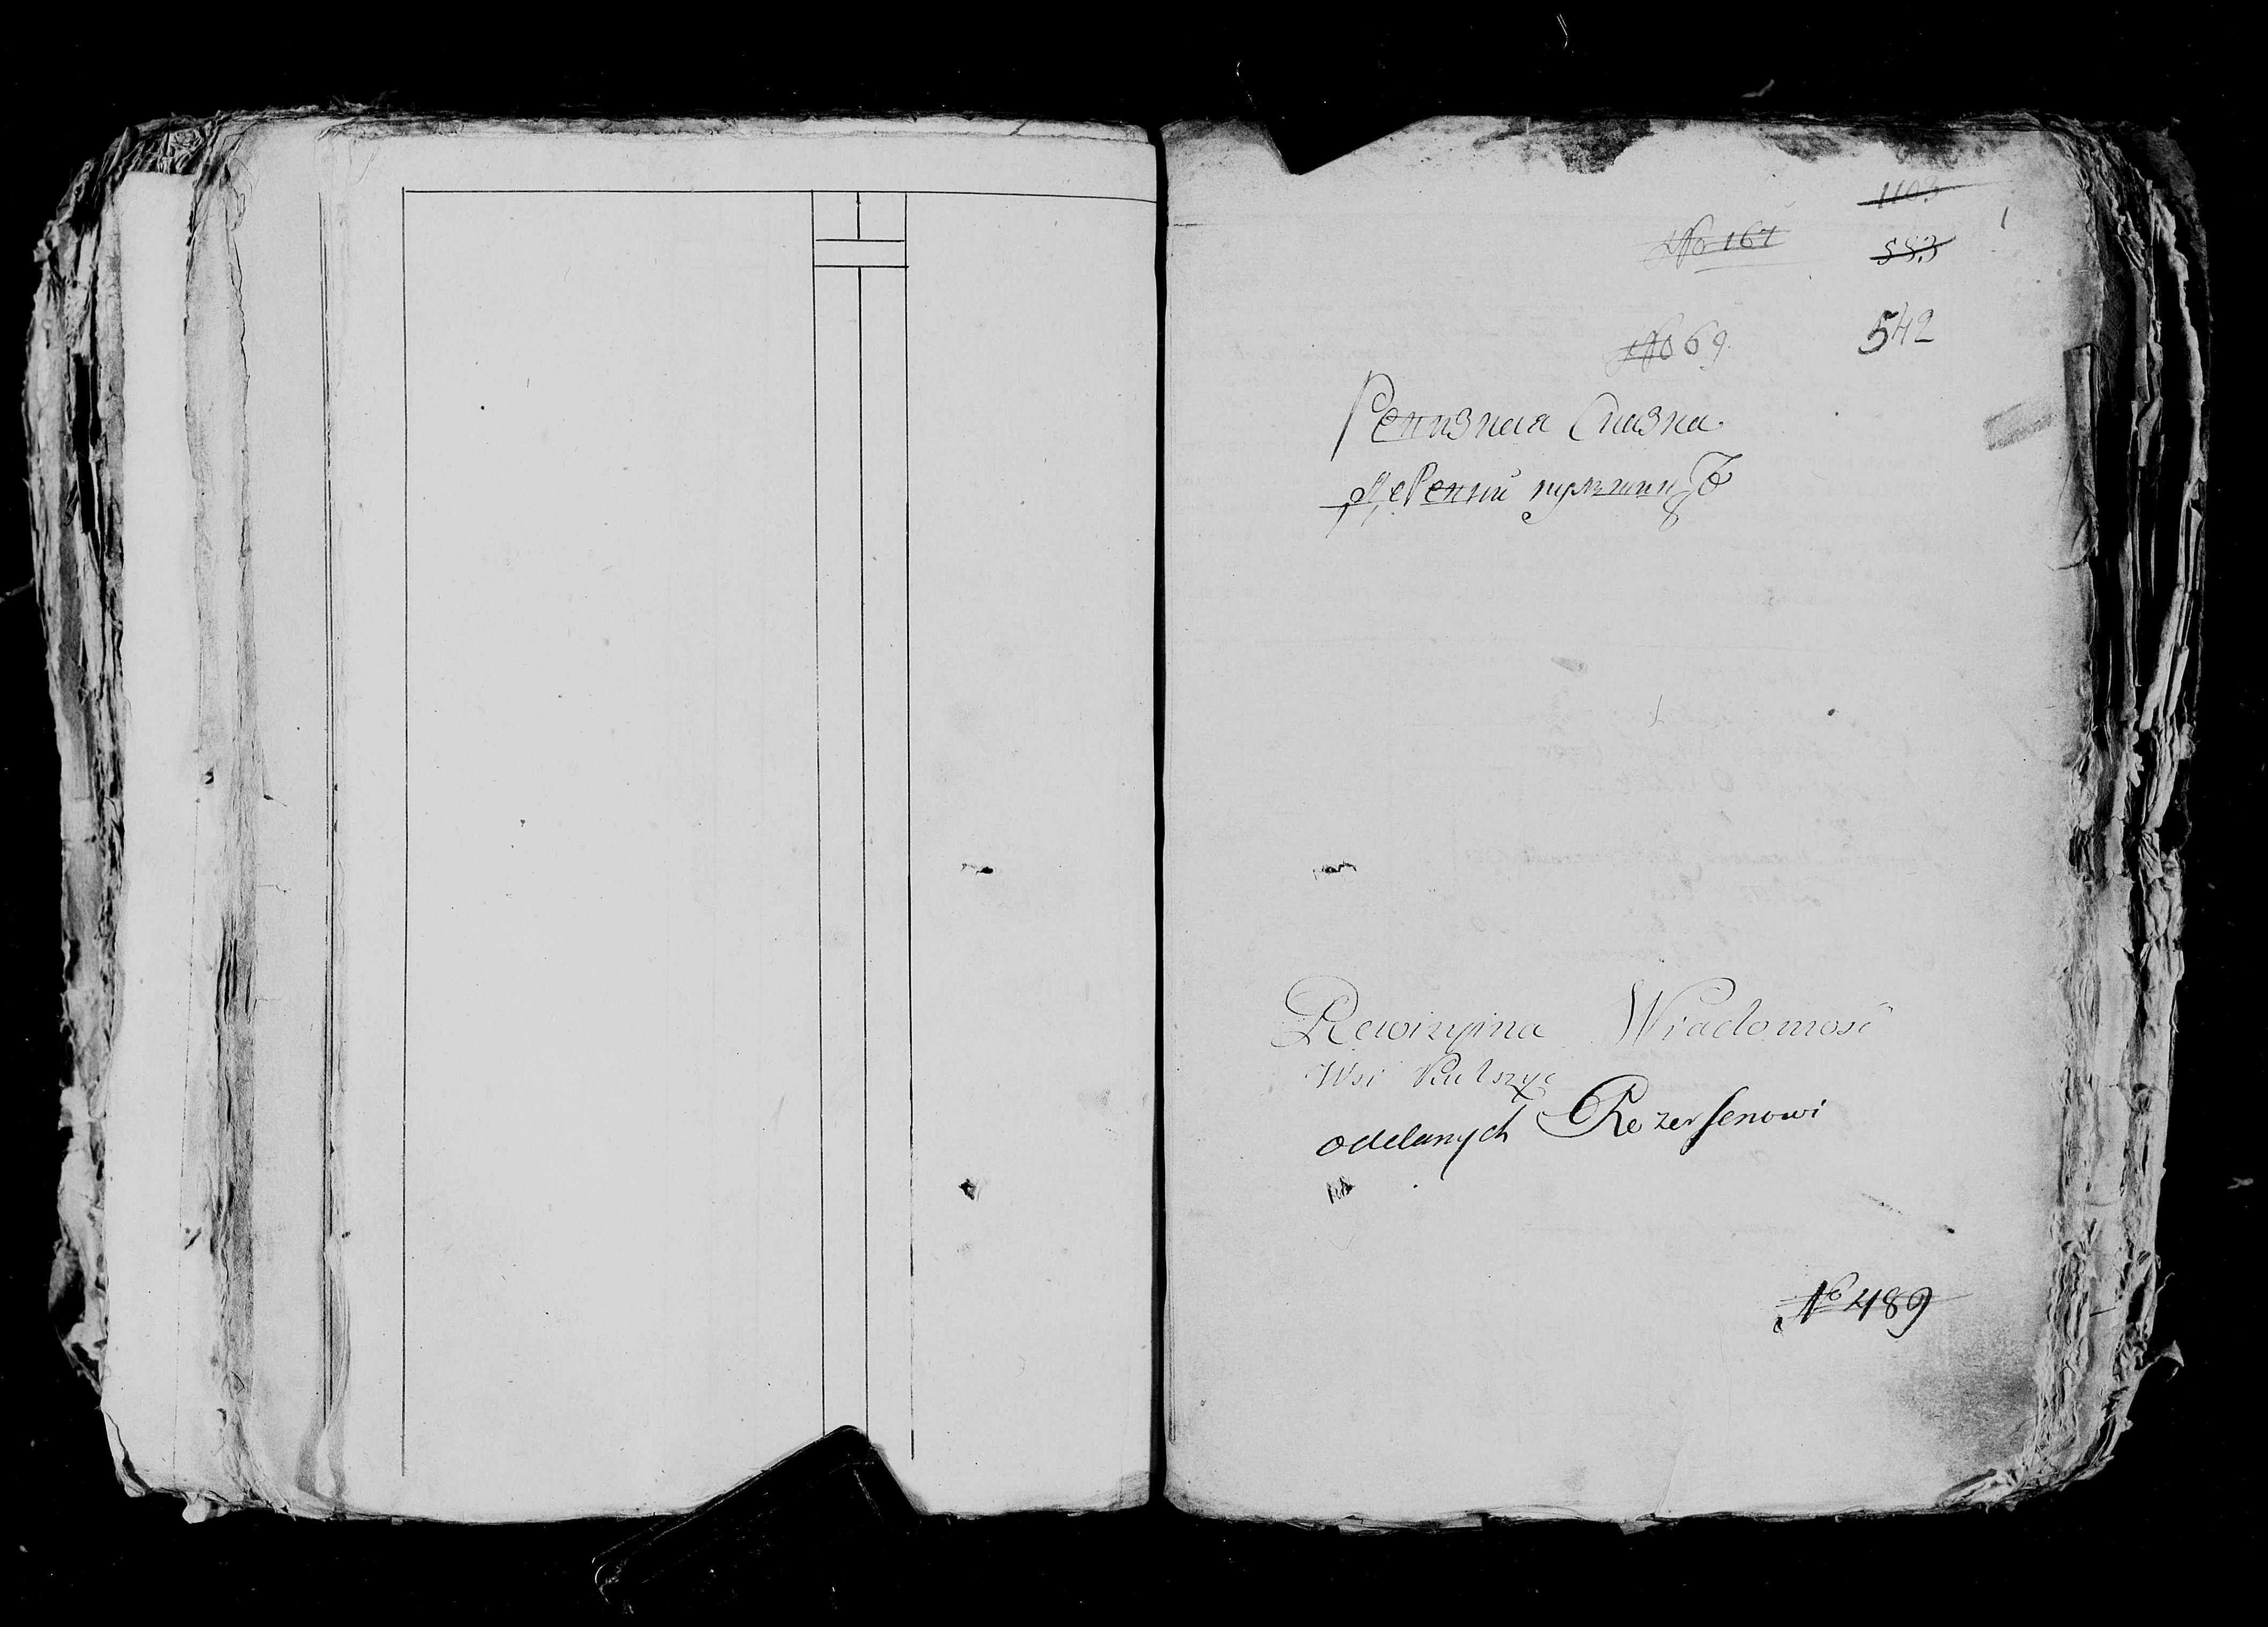 1103
№ 167
583
№ 69.
542
Ревизная Сказка.
деревни пульшицъ
Rewizyina Wiadomość
Wsi Pulszyc
oddanych Rezerfenowi
№ 489